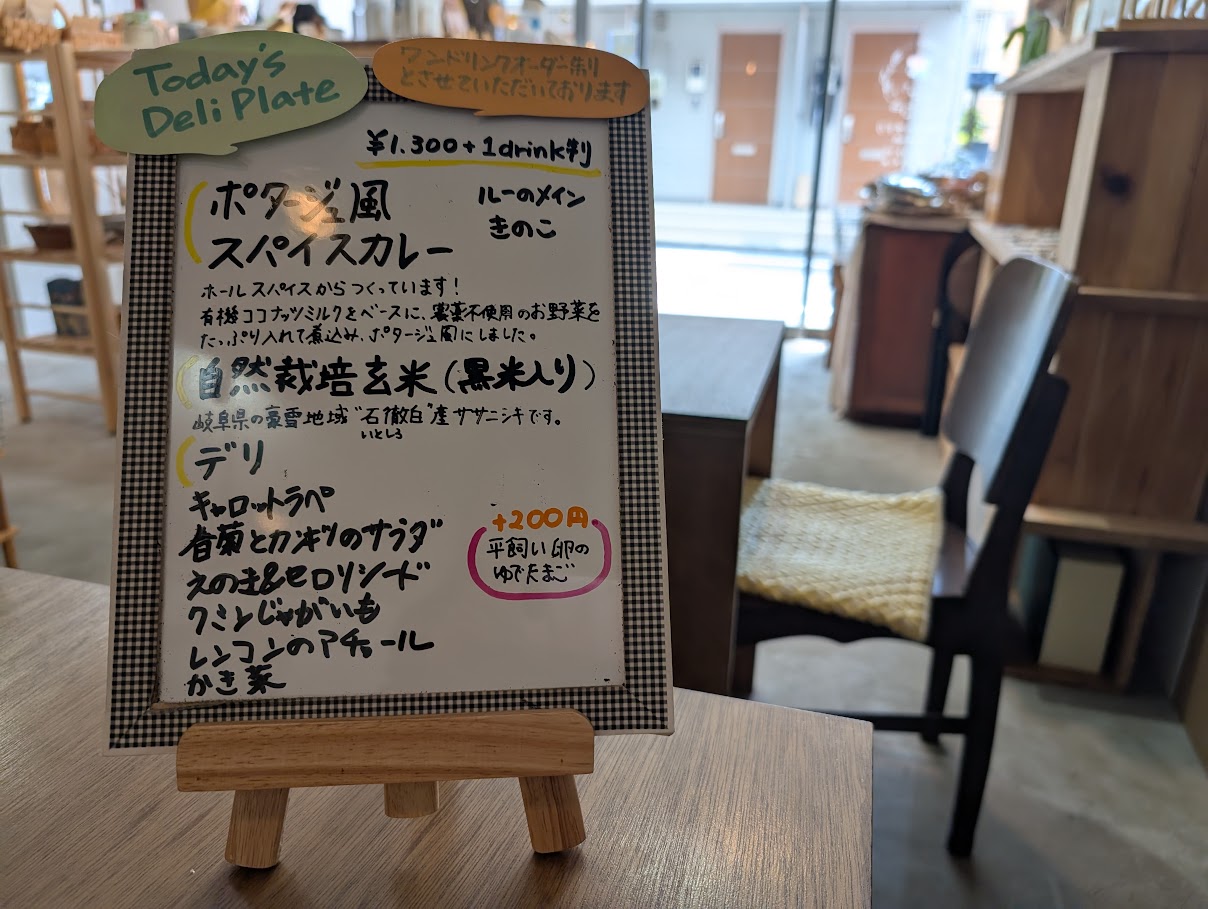 Today's
Deli Plate
ワンドリンクオーダー制
とさせていただいております
¥1.300+1drink制
ポタージュ風
スパイスカレー
ルーのメイン
きのこ
ホールスパイスからつくっています!
有機ココナッツミルクをベースに、農薬不使用のお野菜を
たっぷり入れて煮込み、ポタージュ風にしました。
自然栽培玄米(黒米入り)
岐阜県の豪雪地域"石徹白"産ササニシキです。
いとしろ
デリ
キャロットラペ
春菊とカンキツのサラダ
えのき&セロリシード
クミンじゃがいも
レンコンのアチョール
かき菜
+200円
平飼い卵の
ゆでたまご